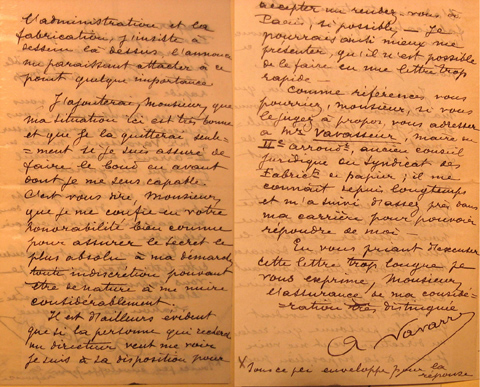 l'administration et la
fabrication, j'insiste à
dessein là dessus l'annonce
me paraissant attacher à ce
point quelque importance
J'ajouterai, Monsieur, que
ma situation ici est très bonne
et que je la quitterai seule-
ment si je suis assuré de
faire le bond en avant
dont je me sens capable.
C'est vous dire, Monsieur,
que je me confie en votre
honorabilité bien connue
pour assurer le secret le
plus absolu à ma démarche
toute indiscrétion pouvant
être de nature à me nuire
considérablement.
Il est d'ailleurs évident
que si la personne qui recherche
un directeur veut me voir
je suis à sa disposition pour
accepter un rendez-vous à
Paris, si possible — Je
pourrais ainsi mieux me
présenter, qu'il n'est possible
de le faire en une lettre trop
rapide —
Comme références vous
pourriez, monsieur, si vous
le jugez à propos, vous adresser
à Mr Vavasseur, maire du
IIe arrondt, ancien conseil
juridique du Syndicat des
Fabricts de papier; il me
connait depuis longtemps
et m'a suivi d'assez près dans
ma carrière pour pouvoir
répondre de moi —
En vous priant d'excuser
cette lettre trop longue je
vous exprime, Monsieur,
l'assurance de ma considé-
ration très distinguée
A Navarre
X Sous ce pli enveloppe pour la
réponse